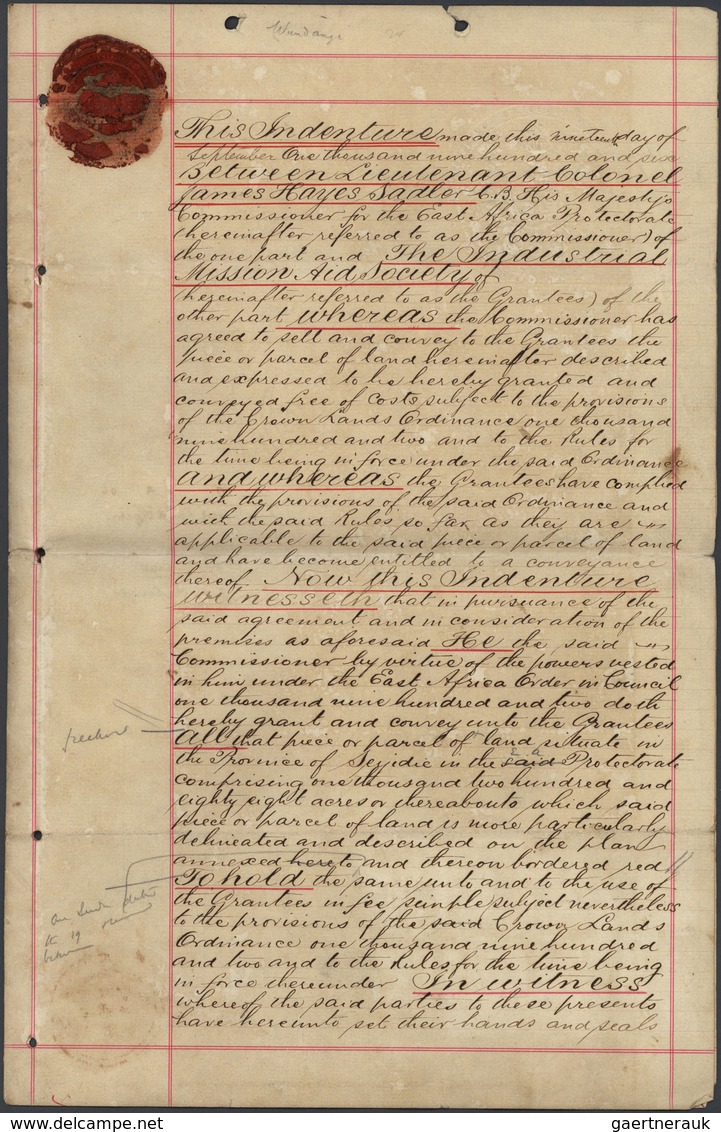 Wundanyi
This Indenture made this nineteenth day of
September One thousand nine hundred and six
Between Lieutenant Colonel
James Hayes Sadler C.B. His Majesty's
Commissioner for the East Africa Protectorate
(hereinafter referred to as the Commissioner) of
the one part and The Industrial
Mission Aid Society of
(hereinafter referred to as the Grantees) of the
other part whereas the Commissioner has
agreed to sell and convey to the Grantees the
piece or parcel of land hereinafter described
and expressed to be hereby granted and
conveyed free of costs subject to the provisions
of the Crown Lands Ordinance one thousand
nine hundred and two and to the Rules for
the time being in force under the said Ordinance
and whereas the Grantees have complied
with the provisions of the said Ordinance and
with the said Rules so far as they are
applicable to the said piece or parcel of land
and have become entitled to a conveyance
thereof Now this Indenture
witnesseth that in pursuance of the
said agreement and in consideration of the
premises as aforesaid He the said
Commissioner by virtue of the powers vested
in him under the East Africa Order in Council
one thousand nine hundred and two doth
hereby grant and convey unto the Grantees
All that piece or parcel of land situate in
the Province of Seyidie in the said Protectorate
comprising one thousand two hundred and
eighty eight acres or thereabouts which said
piece or parcel of land is more particularly
delineated and described on the plan
annexed hereto and thereon bordered red
To hold the same unto and to the use of
the Grantees in fee simple subject nevertheless
to the provisions of the said Crown Lands
Ordinance one thousand nine hundred
and two and to the Rules for the time being
in force thereunder In witness
whereof the said parties to these presents
have hereunto set their hands and seals
gaertnerauk